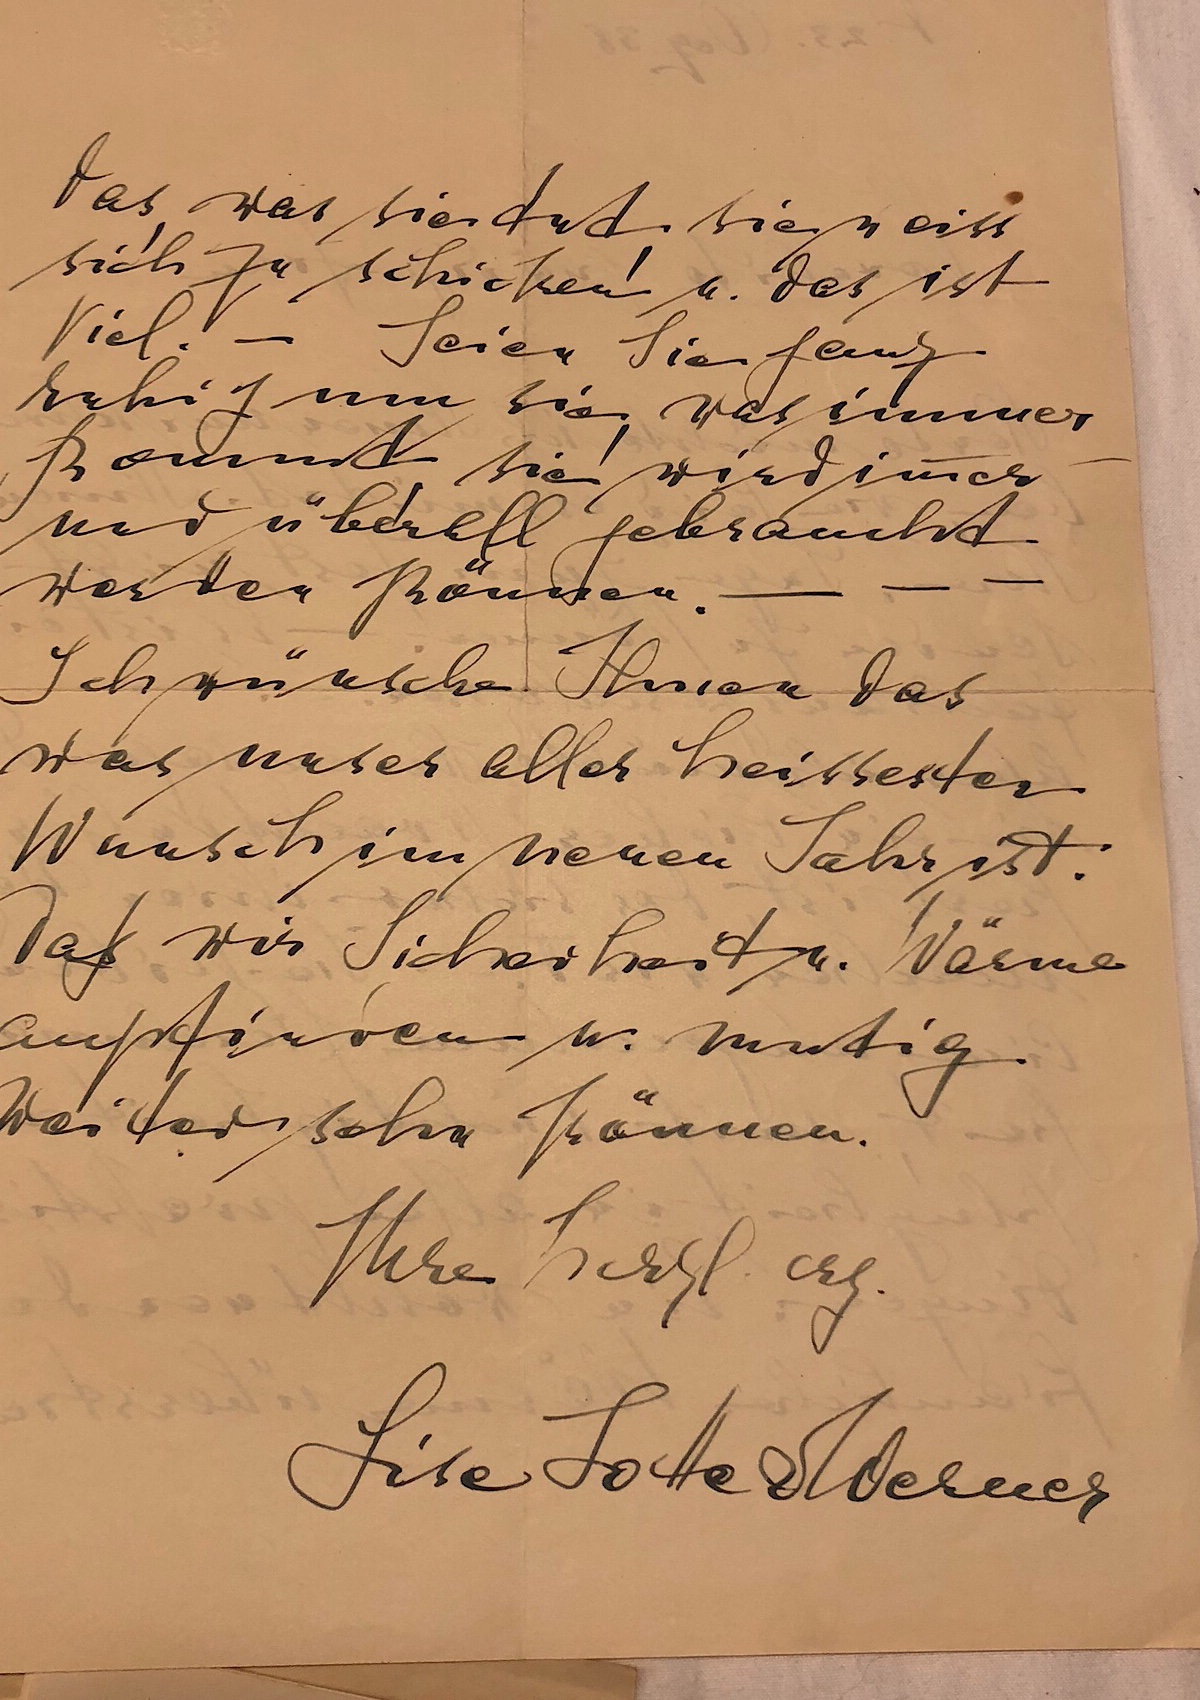 das, was sie tut. sie weiss
sich zu schicken u. das ist
Viel. — Seien Sie ganz
ruhig um sie, was immer
kommt, sie wird immer —
und überall gebraucht
werden können. — — —
Ich wünsche Ihnen das
was unser aller heissester
Wunsch im neuen Jahr ist:
Daß wir Sicherheit u. Wärme
empfinden u. mutig
weiter sehn können.
Ihre herzl. erg.
Lise Lotte Werner